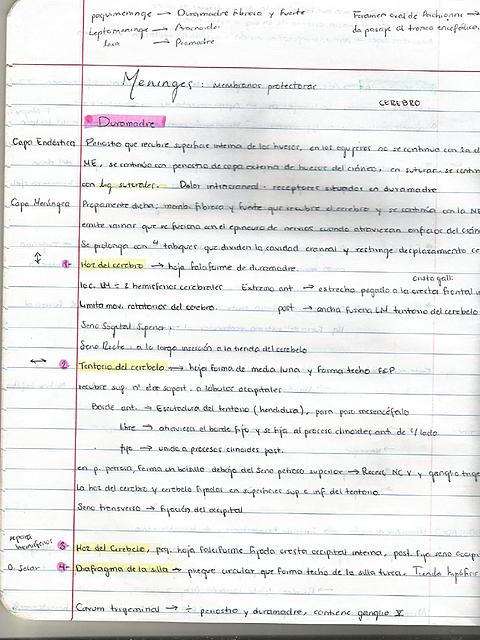 paquimeninge → Duramadre Fibrosa y fuerte
Foramen oval de Pachionni →
Leptomeninge → Aracnoides
da pasaje al tronco encefálico.
laxa → Piamadre
Meninges: membranas protectoras
CEREBRO
Duramadre
Capa Endóstica
Periostio que recubre superficie interna de los huesos, en los agujeros no se continua con la d
ME, se continua con periostio de capa externa de huesos del cráneo, en suturas se contin
con lig suturales. Dolor intracraneal - receptores situados en duramadre
Capa Meníngea
Propiamente dicha; memb. fibrosa y fuerte que recubre el cerebro y se continúa con la ME
emite vainas que se fusiona con el epineuro de nervios cuando atraviezan orificios del crán
Se prolonga con 4 tabiques que dividen la cavidad craneal y restringe desplazamiento ce
1- Hoz del cerebro → hoja falciforme de duramadre.
crista galli
loc. LM ÷ 2 hemisferios cerebrales Extremo ant → estrecho pegado a la cresta frontal in
Limita mov. rotatorios del cerebro. post → ancha fusiona LM tentorio del cerebelo
Seno Sagital Superior:
Seno Recto: a lo largo inserción a la tienda del cerebelo
2- Tentorio del cerebelo → hoja forma de media luna y forma techo FCP
recubre sup. soport. a lóbulos occipitales
Borde ant. → Escotadura del tentorio (hendidura), para paso mesencéfalo
libre → atravieza el borde fijo y se fija al proceso clinoides ant. de c/lado
fijo → unido a procesos clinoides post.
en p. petrosa, forma un bolsillo debajo del Seno petroso superior → Receso NC V y ganglio trige
La hoz del cerebro y cerebelo fijados en superficies sup e inf. del tentorio
Seno transverso → fijación del occipital
separa hemisferios
3- Hoz del Cerebelo, peq. hoja falciforme fijada cresta occipital interna, post. fijo seno occip
D. Selar
4- Diafragma de la silla → pliegue circular que forma techo de la silla turca, Tienda hipófisis
Cavum trigeminal → ÷ periostio y duramadre, contiene ganglio V.